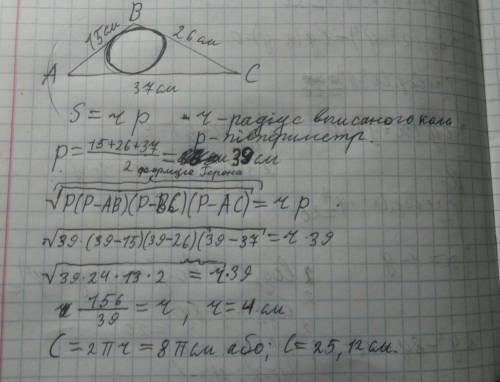 B
15см
26см
A
C
37см
S = r p - r - радіус вписаного кола
p - півпериметр.
P = \frac{15+26+37}{2} = 39 см
формула Герона
√P(P-AB)(P-BC)(P-AC) = r p
√39·(39-15)(39-26)(39-37) = r·39
√39·24·13·2 = r·39
\frac{156}{39} = r ; r = 4 см
C = 2πr = 8π см або; C = 25,12 см.